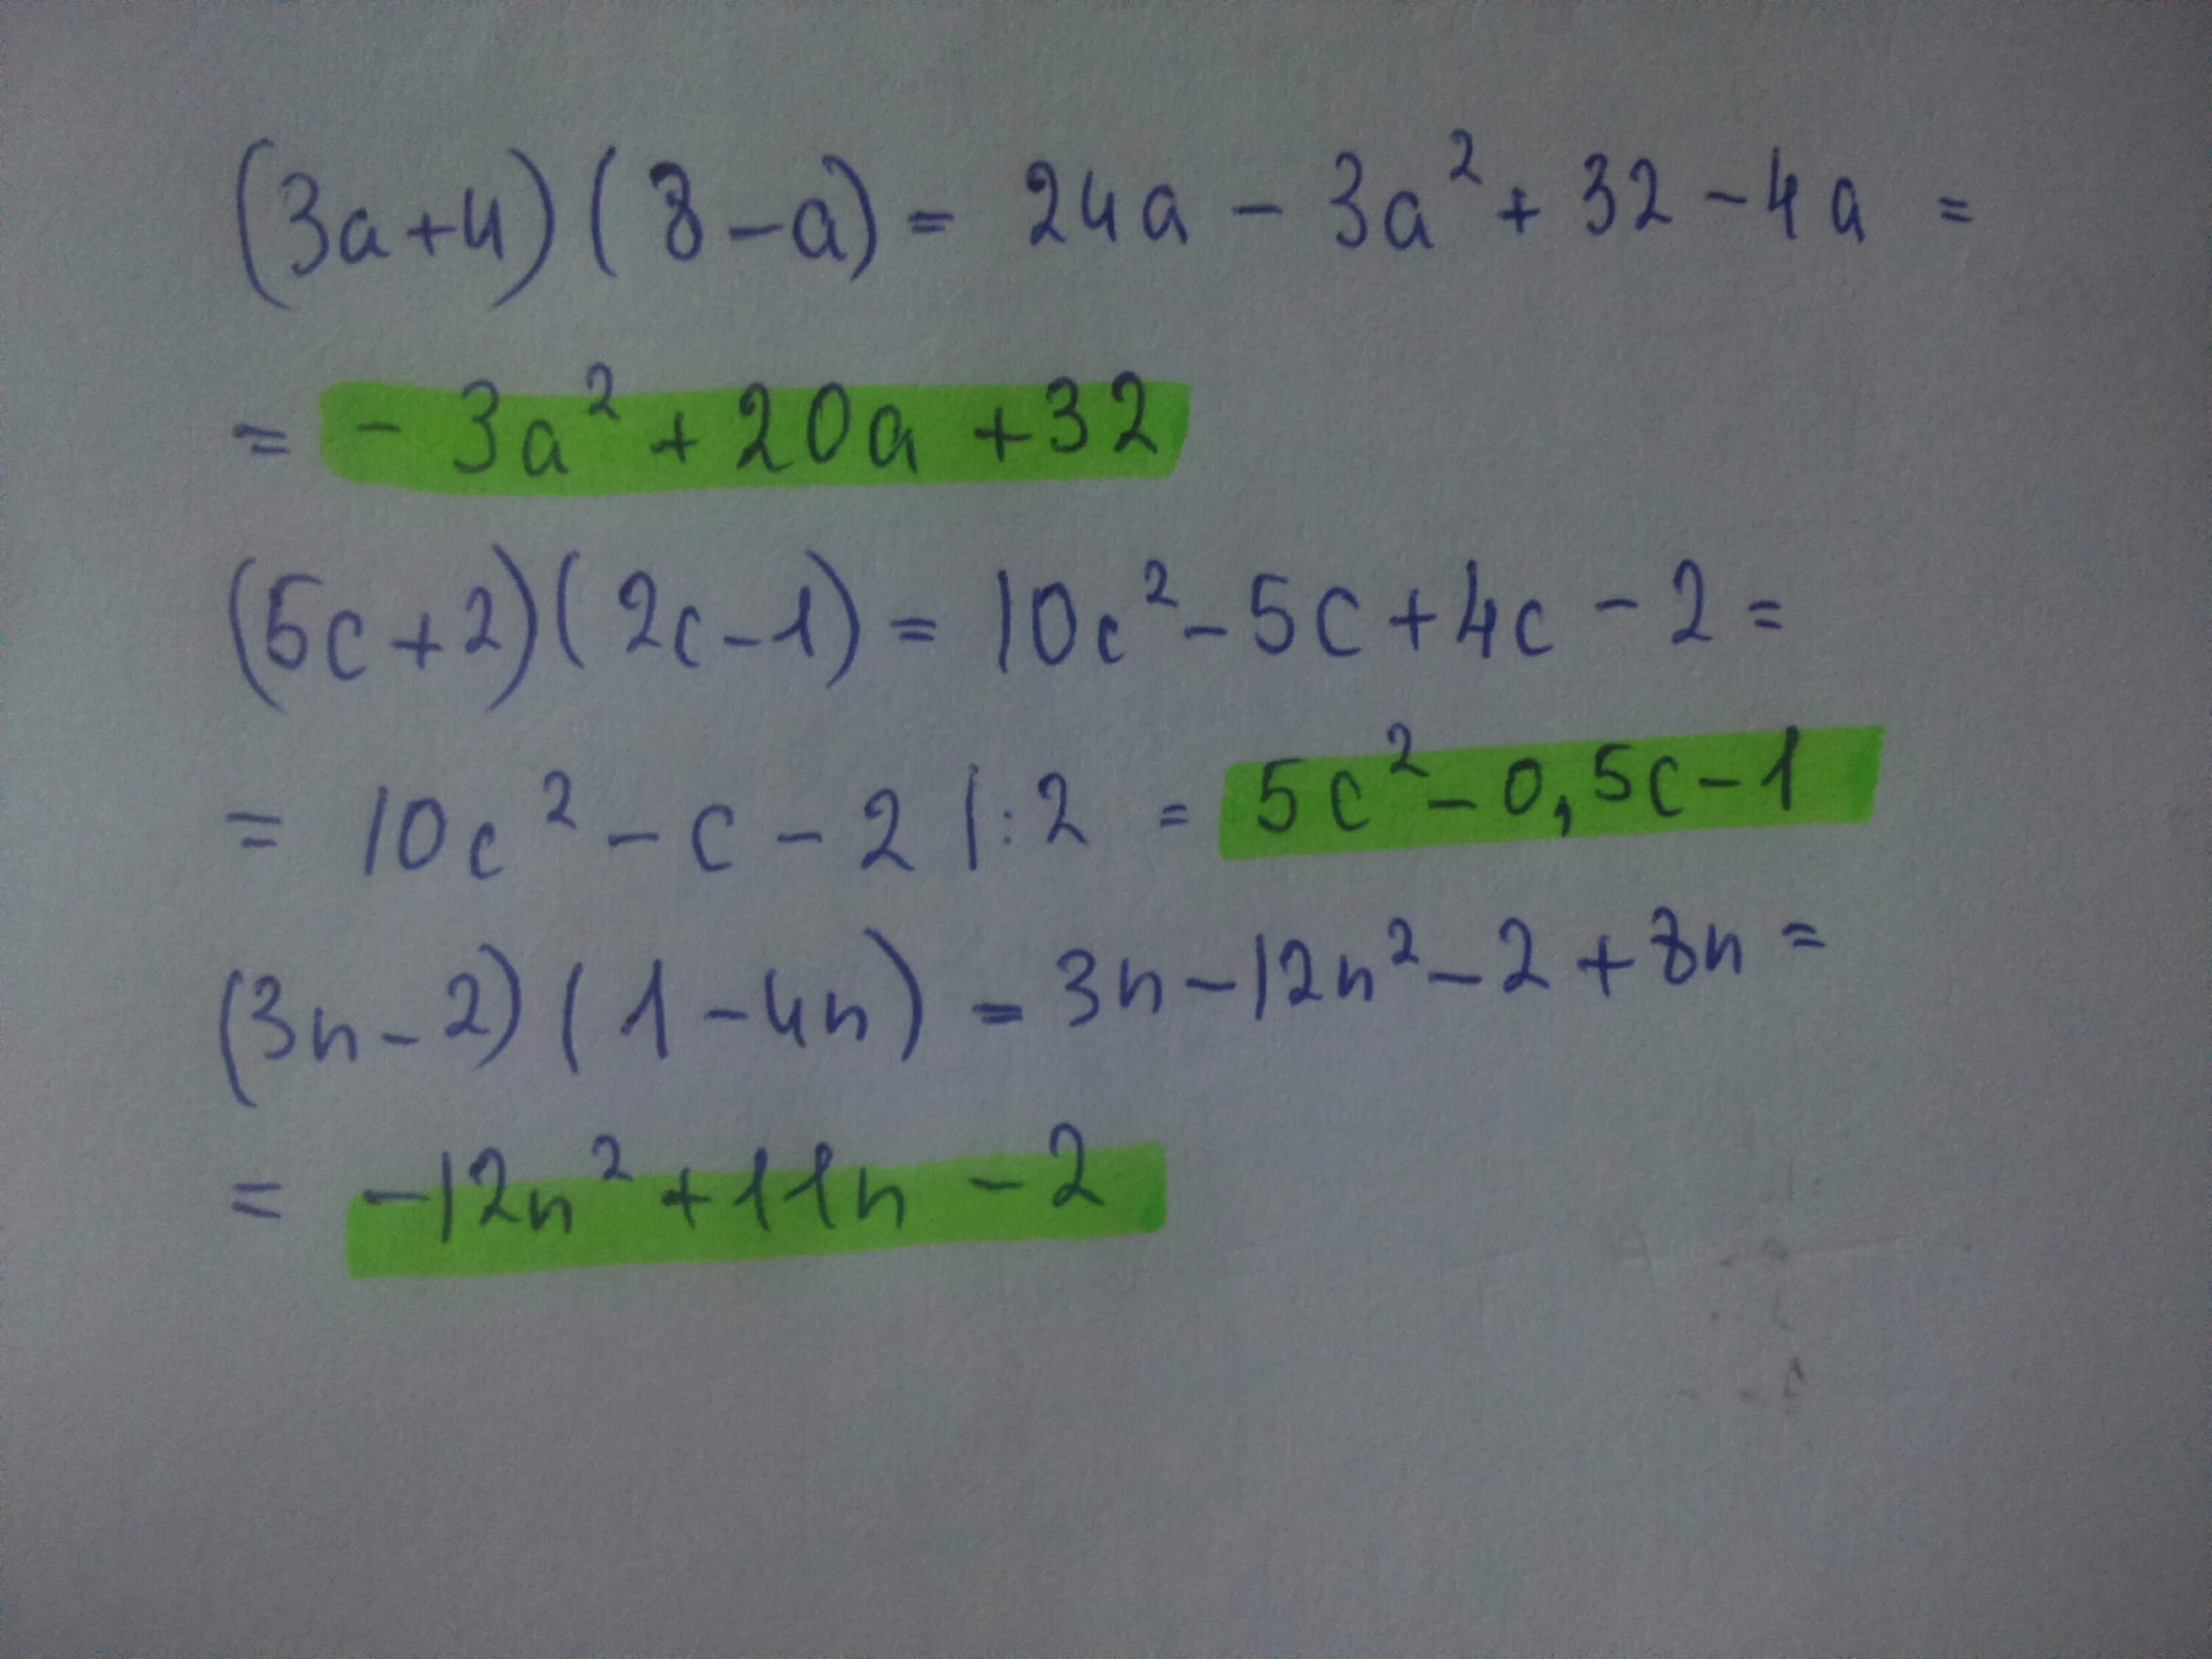 (3a+4)(8-a) = 24a - 3a² + 32 - 4a =
= -3a² + 20a + 32
(5c+2)(2c-1) = 10c² - 5c + 4c - 2 =
= 10c² - c - 2 |:2 = 5c² - 0,5c - 1
(3n-2)(1-4n) = 3n - 12n² - 2 + 8n =
= -12n² + 11n - 2